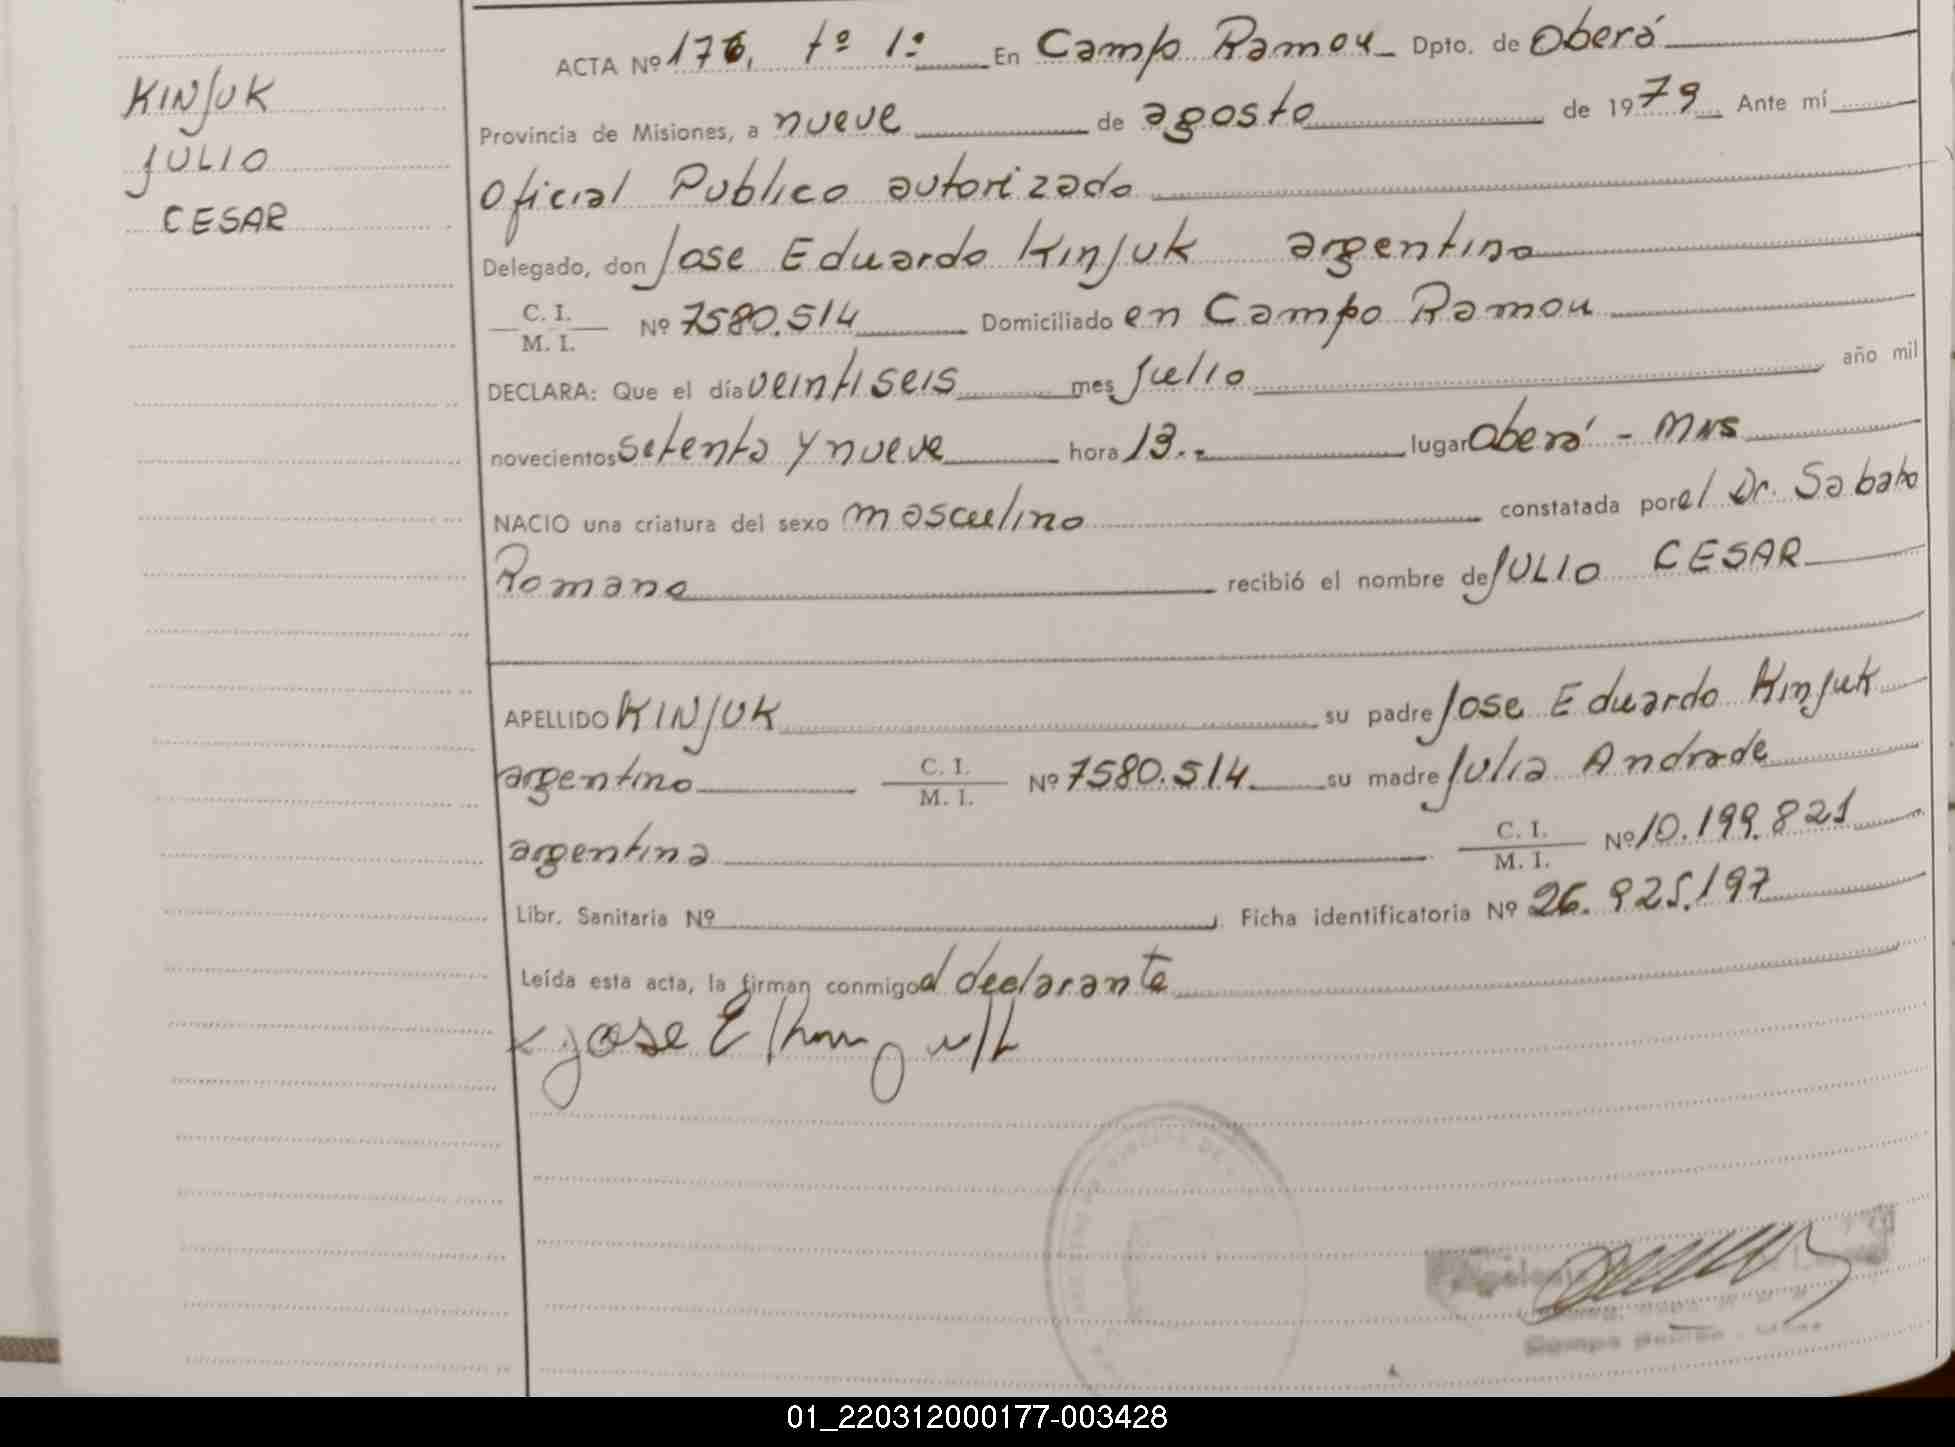 KINJUK
JULIO
CESAR
ACTA Nº 176, tº 1º En Campo Ramon Dpto. de Oberá
Provincia de Misiones, a nueve de agosto de 1979 Ante mí
Oficial Publico autorizado
Delegado, don Jose Eduardo Kinjuk argentino
C. I.
M. I. Nº 7580.514 Domiciliado en Campo Ramon
DECLARA: Que el día veintiseis mes Julio año mil
novecientos setenta y nueve hora 13.- lugar Oberá - Mns
NACIO una criatura del sexo masculino constatada por el Dr. Sabato
Romano recibió el nombre de JULIO CESAR
APELLIDO KINJUK su padre Jose Eduardo Kinjuk
argentino C. I.
M. I. Nº 7580.514 su madre Julia Andrade
argentina C. I.
M. I. Nº 10.199.821
Libr. Sanitaria Nº Ficha identificatoria Nº 26.925.197
Leída esta acta, la firman conmigo el declarante
Jose E
Campo
01_220312000177-003428